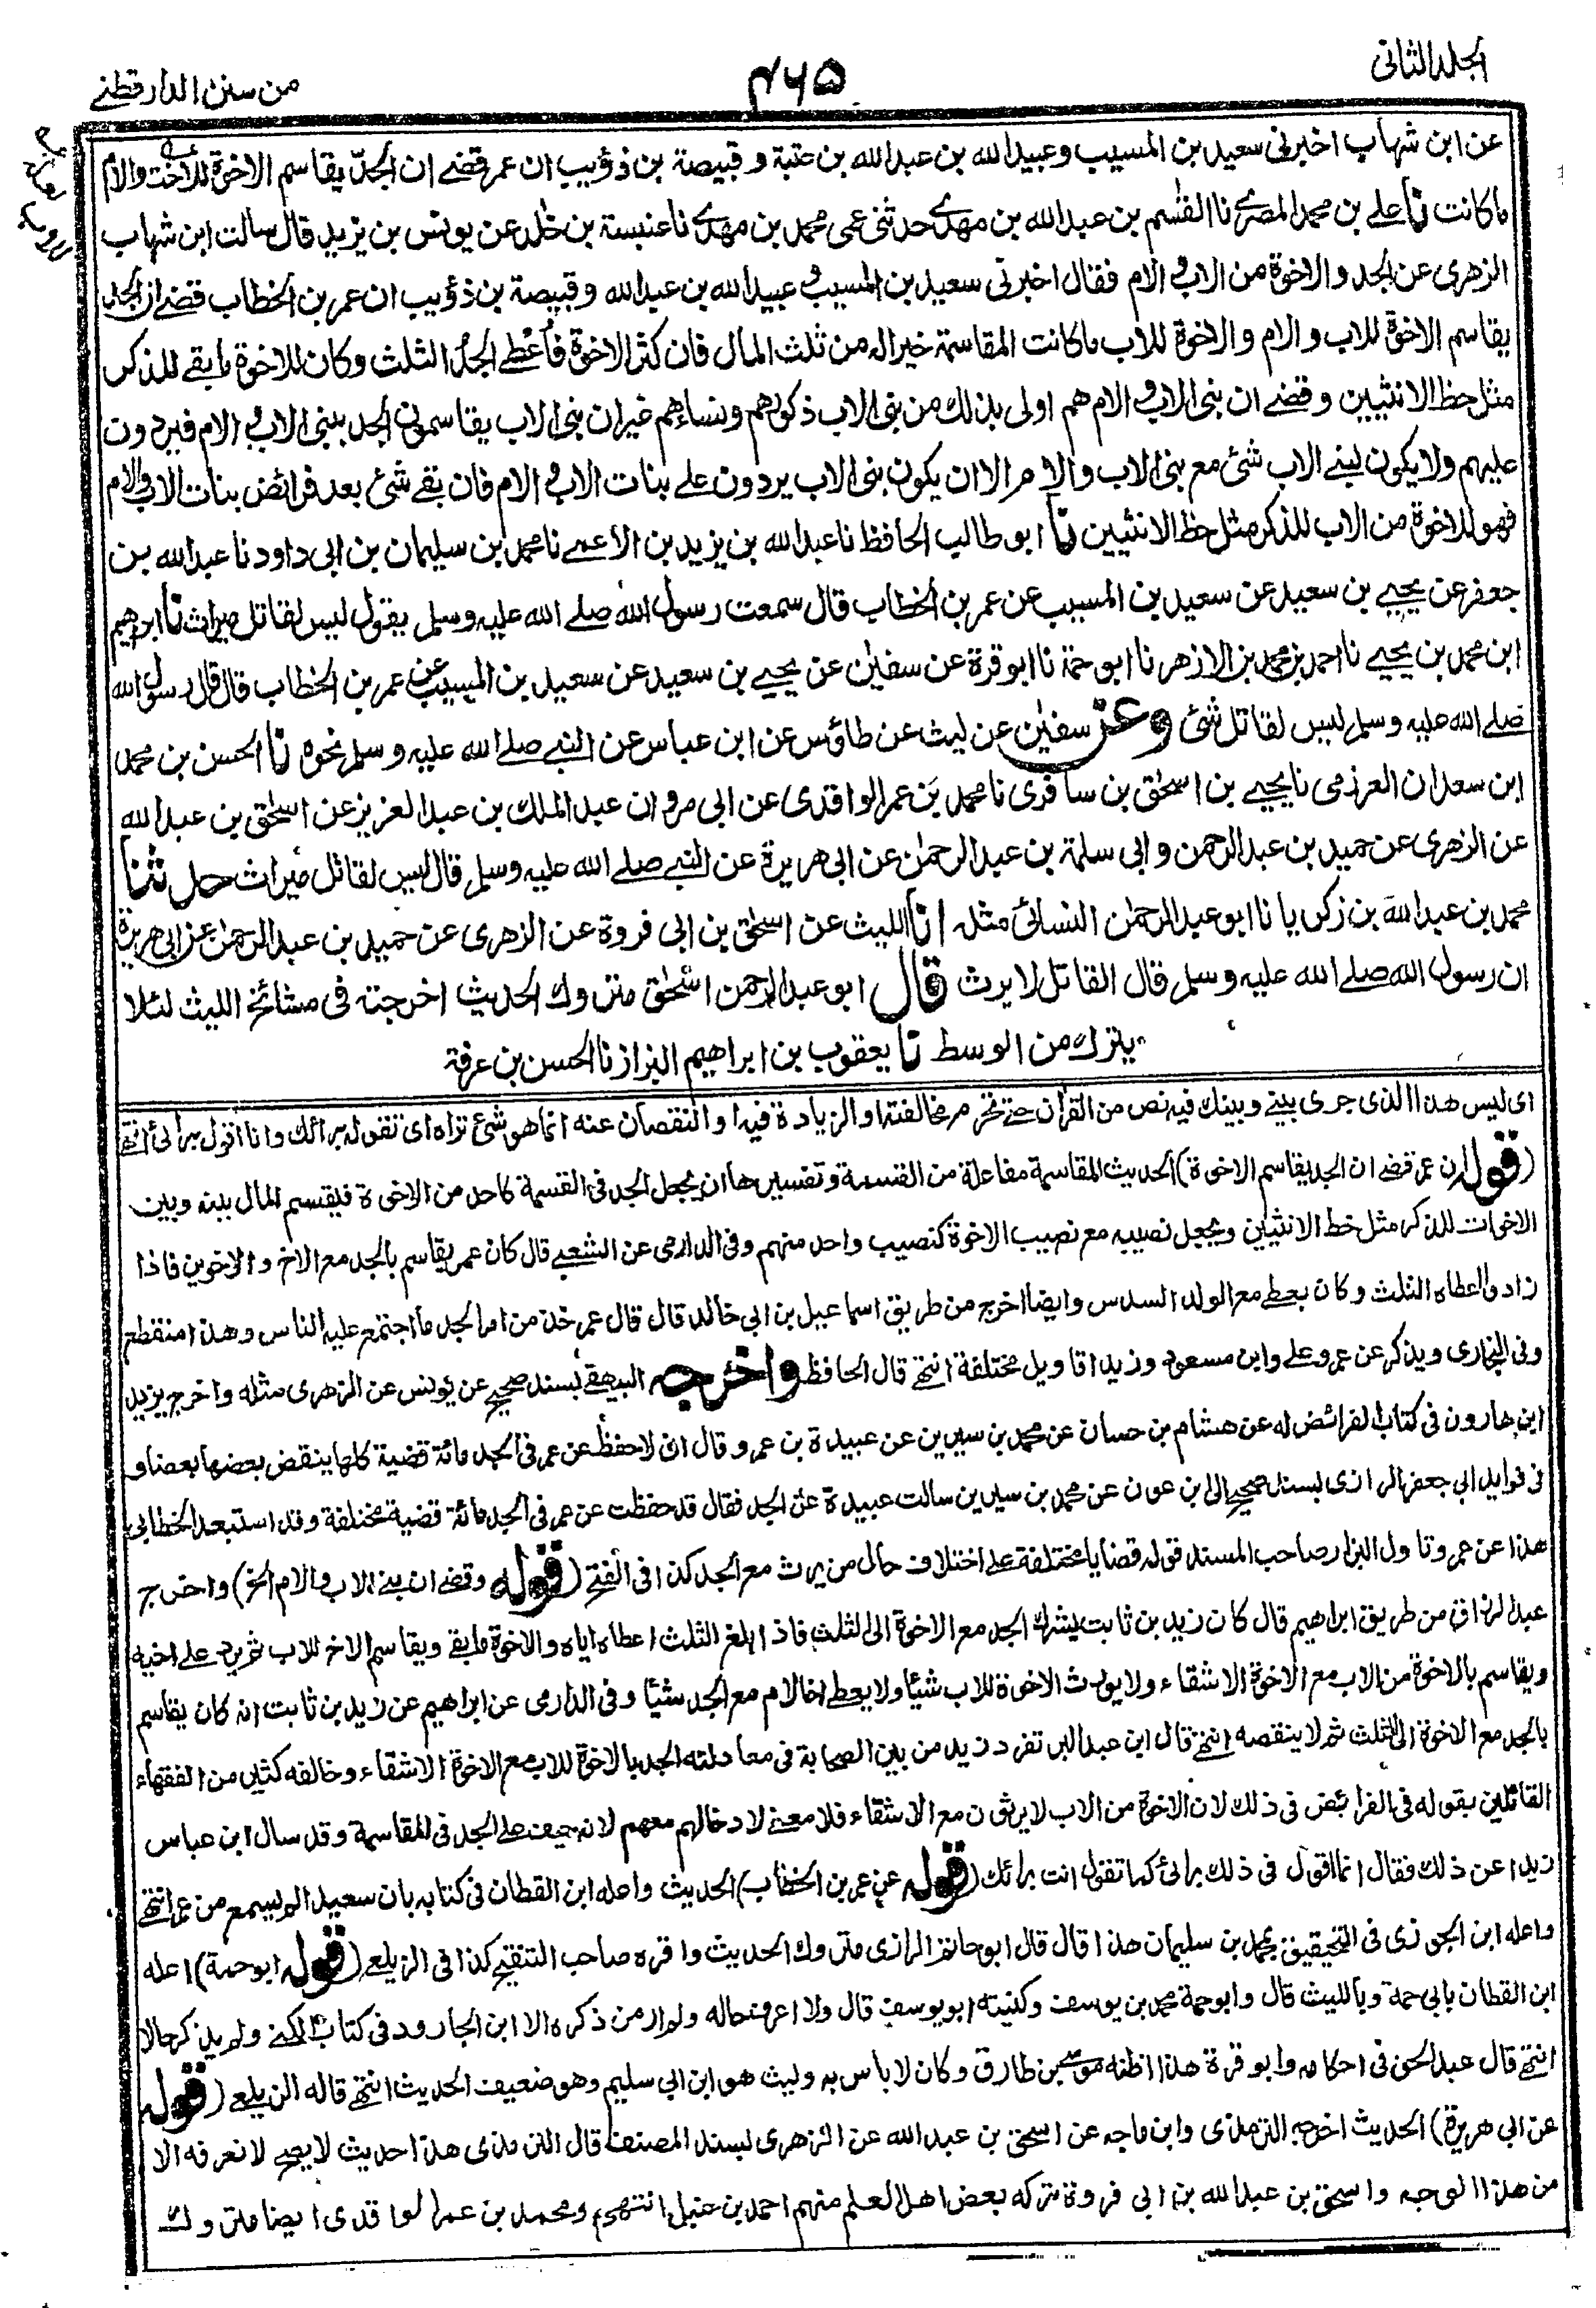 الجلد الثانى
٤٦٥
من سنن الدارقطنے
عن ابن شهاب اخبرنى سعيد بن المسيب وعبيد الله بن عبد الله بن عتبة وقبيصة بن ذؤيب ان عمر قضے ان الجد يقاسم الاخوة للاخت والام
ما كانت نا علے بن محمد المصرى نا القسم بن عبد الله بن مهدى حدثنى عمى محمد بن مهدى نا عنبسة بن خلد عن يونس بن يزيد قال سالت ابن شهاب
الزهرى عن الجد والاخوة من الاب والام فقال اخبرنى سعيد بن المسيب وعبيد الله بن عبد الله وقبيصة بن ذؤيب ان عمر بن الخطاب قضے ان الجد
يقاسم الاخوة للاب والام والاخوة للاب ما كانت المقاسمة خيرا له من ثلث المال فان كثر الاخوة فاعطے الجد الثلث وكان للاخوة ما بقے للذكر
مثل حظ الانثيين وقضے ان بنى الاب والام هم اولى بذلك من بنى الاب ذكورهم ونساءهم غير ان بنى الاب يقاسمون الجد ببنى الاب والام فيردون
عليهم ولا يكون لبنے الاب شئ مع بنى الاب والام الا ان يكون بنى الاب يردون علے بنات الاب والام فان بقے شئ بعد فرائض بنات الاب والام
فهو للاخوة من الاب للذكر مثل حظ الانثيين نا ابو طالب الحافظ نا عبد الله بن يزيد بن الاعمے نا محمد بن سليمان بن ابى داود نا عبد الله بن
جعفر عن يحيے بن سعيد عن سعيد بن المسيب عن عمر بن الخطاب قال سمعت رسول الله صلے الله عليه وسلم يقول ليس لقاتل ميراث نا ابرهيم
ابن محمد بن يحيے نا احمد بن محمد بن الازهر نا ابو حمة نا ابو قرة عن سفين عن يحيے بن سعيد عن سعيد بن المسيب عن عمر بن الخطاب قال قال رسول الله
صلے الله عليه وسلم ليس لقاتل شئ وعن سفين عن ليث عن طاؤس عن ابن عباس عن النبے صلے الله عليه وسلم نحوه نا الحسن بن محمد
ابن سعدان العرزمى نا يحيے بن اسحق بن سافرى نا محمد بن عمر الواقدى عن ابى مروان عبد الملك بن عبد العزيز عن اسحق بن عبد الله
عن الزهرى عن حميد بن عبد الرحمن وابى سلمة بن عبد الرحمن عن ابى هريرة عن النبے صلے الله عليه وسلم قال ليس لقاتل ميراث حدثنا
محمد بن عبد الله بن زكريا نا ابو عبد الرحمن النسائى مثله انا الليث عن اسحق بن ابى فروة عن الزهرى عن حميد بن عبد الرحمن عن ابى هريرة
ان رسول الله صلے الله عليه وسلم قال القاتل لا يرث قال ابو عبد الرحمن اسحق متروك الحديث اخرجته فى مشائخ الليث لئلا
يترك من الوسط نا يعقوب بن ابراهيم البزاز نا الحسن بن عرفة
اى ليس هذا الذى جرى بينے وبينك فيه نص من القران حتے تحرم مخالفته او الزيادة فيه او النقصان عنه انما هو شئ تراه اى تقوله برائك وانا اقول برائى انتهے
(قوله ان عمر قضے ان الجد يقاسم الاخوة) الحديث المقاسمة مفاعلة من القسمة وتفسيرها ان يجعل الجد فى القسمة كاحد من الاخوة فيقسم المال بينه وبين
الاخوات للذكر مثل حظ الانثيين ويجعل نصيبه مع نصيب الاخوة كنصيب واحد منهم وفى الدارمى عن الشعبے قال كان عمر يقاسم بالجد مع الاخ والاخوين فاذا
زادوا اعطاه الثلث وكان يعطے مع الولد السدس وايضا اخرج من طريق اسماعيل بن ابى خالد قال قال عمر خذ من امر الجد ما اجتمع عليه الناس وهذا منقطع
وفى البخارى ويذكر عن عمر وعلے وابن مسعود وزيد اقاويل مختلفة انتهے قال الحافظ واخرجه البيهقے بسند صحيح عن يونس عن الزهرى مثله واخرج يزيد
ابن هارون فى كتاب الفرائض له عن هشام بن حسان عن محمد بن سيرين عن عبيدة بن عمرو قال انى لاحفظ عن عمر فى الجد مائة قضية كلها ينقض بعضها بعضا و
فى فوايد ابى جعفر الرازى بسند صحيح الى ابن عون عن محمد بن سيرين سالت عبيدة عن الجد فقال قد حفظت عن عمر فى الجد مائة قضية مختلفة وقد استبعد الخطابى
هذا عن عمر وتاول البزار صاحب المسند قوله قضايا مختلفة علے اختلاف حال من يرث مع الجد كذا فى الفتح (قوله وقضے ان بنے الاب والام الخ) واخرج
عبد الرزاق من طريق ابراهيم قال كان زيد بن ثابت يشرك الجد مع الاخوة الى الثلث فاذا بلغ الثلث اعطاه اياه والاخوة ما بقے ويقاسم الاخ للاب ثم يرد علے اخيه
ويقاسم بالاخوة من الاب مع الاخوة الاشقاء ولا يورث الاخوة للاب شيئا ولا يعطے اخا لام مع الجد شيئا وفى الدارمى عن ابراهيم عن زيد بن ثابت انه كان يقاسم
بالجد مع الاخوة الى الثلث ثم لا ينقصه انتهے قال ابن عبد البر تفرد زيد من بين الصحابة فى معادلته الجد بالاخوة للاب مع الاخوة الاشقاء وخالفه كثير من الفقهاء
القائلين بقوله فى الفرائض فى ذلك لان الاخوة من الاب لا يرثون مع الاشقاء فلا معنے لادخالهم معهم لانه حيف علے الجد فى المقاسمة وقد سال ابن عباس
زيدا عن ذلك فقال انما اقول فى ذلك برائى كما تقول انت برائك (قوله عن عمر بن الخطاب) الحديث واعله ابن القطان فى كتابه بان سعيد لم يسمع من عمر انتهے
واعله ابن الجوزى فى التحقيق بمحمد بن سليمان هذا قال قال ابو حاتم الرازى متروك الحديث واقره صاحب التنقيح كذا فى الزيلعے (قوله ابو حمة) اعله
ابن القطان بابى حمة وبالليث قال وابو حمة محمد بن يوسف وكنيته ابو يوسف قال ولا اعرف حاله ولم ار من ذكره الا ابن الجارود فى كتاب الكنے ولم يذكر حالا
انتهے قال عبد الحق فى احكامه وابو قرة هذا اظنه موسى بن طارق وكان لا باس به وليث هو ابن ابى سليم وهو ضعيف الحديث انتهے قاله الزيلعے (قوله
عن ابى هريرة) الحديث اخرجه الترمذى وابن ماجه عن اسحق بن عبد الله عن الزهرى بسند المصنف قال الترمذى هذا حديث لا يصح لا نعرفه الا
من هذا الوجه واسحق بن عبد الله بن ابى فروة تركه بعض اهل العلم منهم احمد بن حنبل انتهى ومحمد بن عمر الواقدى ايضا متروك